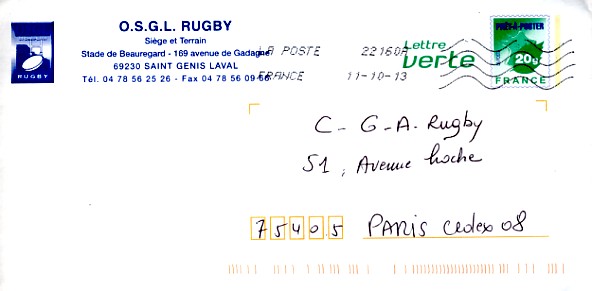 O.S.G.L. RUGBY
Siège et Terrain
Stade de Beauregard - 169 avenue de Gadagne
69230 SAINT GENIS LAVAL
Tél. 04 78 56 25 26 - Fax 04 78 56 09 66
RUGBY
LA POSTE 22160A
FRANCE 11-10-13
Lettre
verte
PRÊT-À-POSTER
20g
FRANCE
C - G - A. Rugby
51, Avenue hoche
75405 PARIS cedex 08